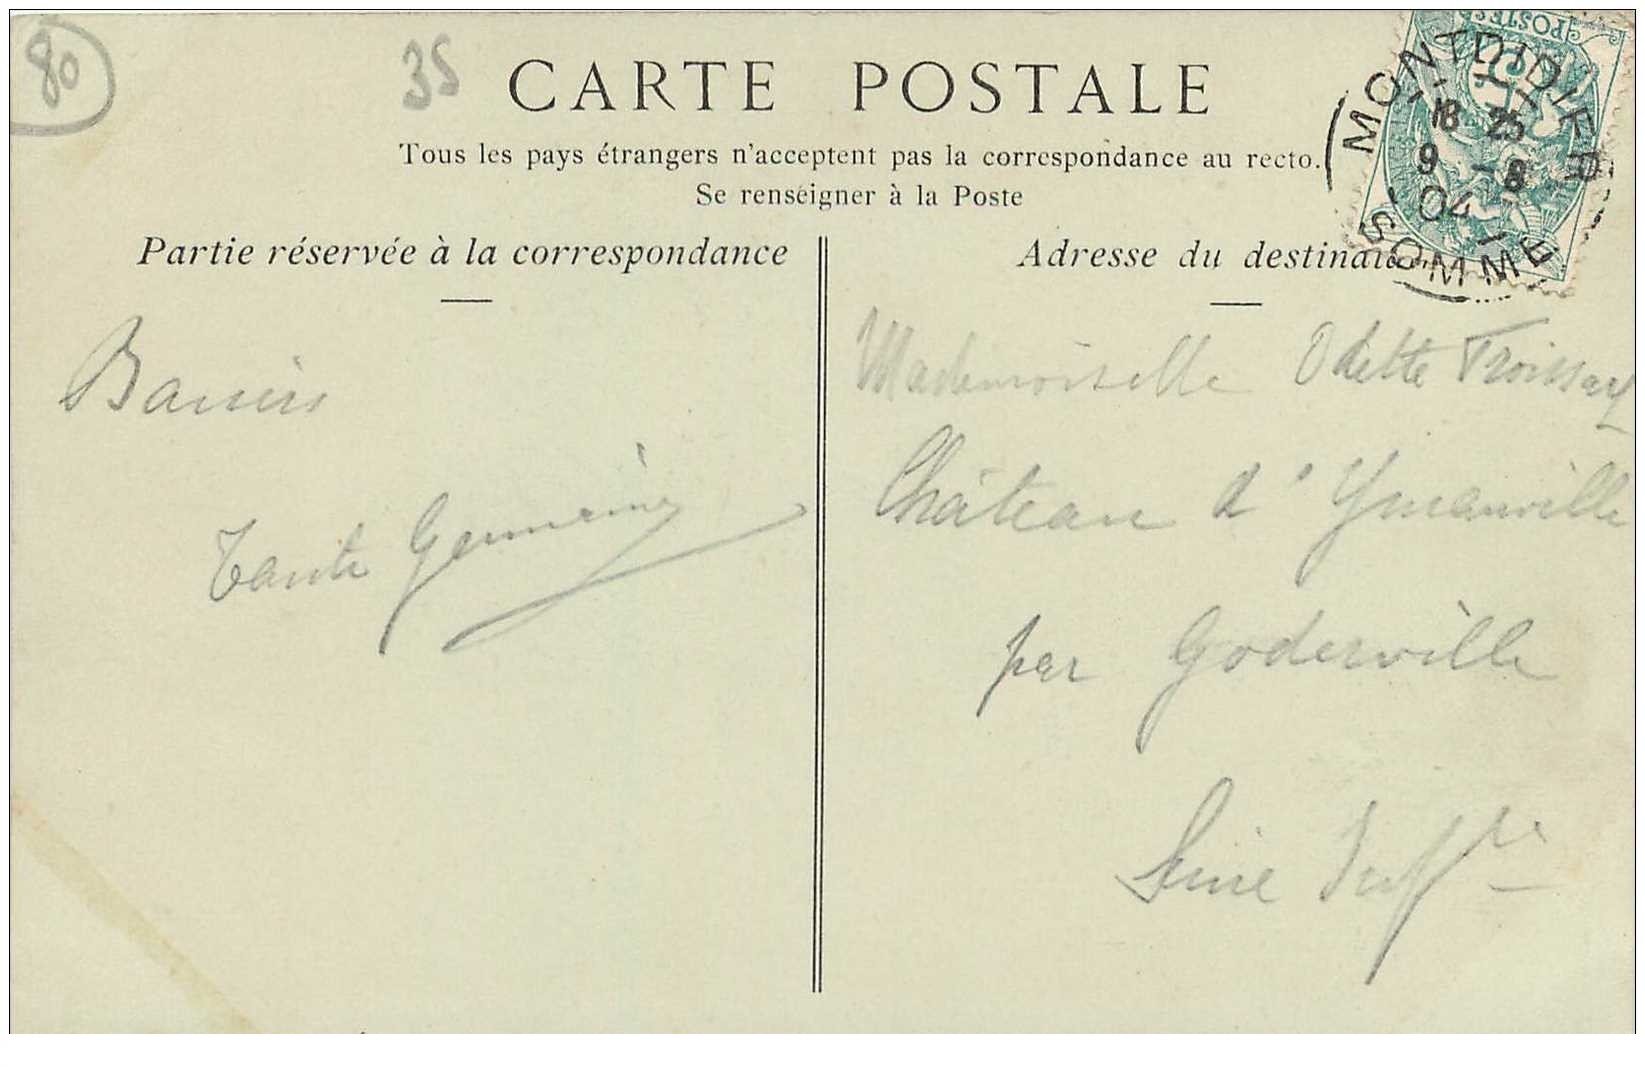 80
35
CARTE POSTALE
Tous les pays étrangers n'acceptent pas la correspondance au recto.
Se renseigner à la Poste
POSTES
MONTDIDIER
18 25
9 - 8
04
SOMME
Partie réservée à la correspondance
Baisers
Tante Germaine
Adresse du destinatai
Mademoiselle Odette Troissart
Château d'Ymauville
par Goderville
Seine Infre